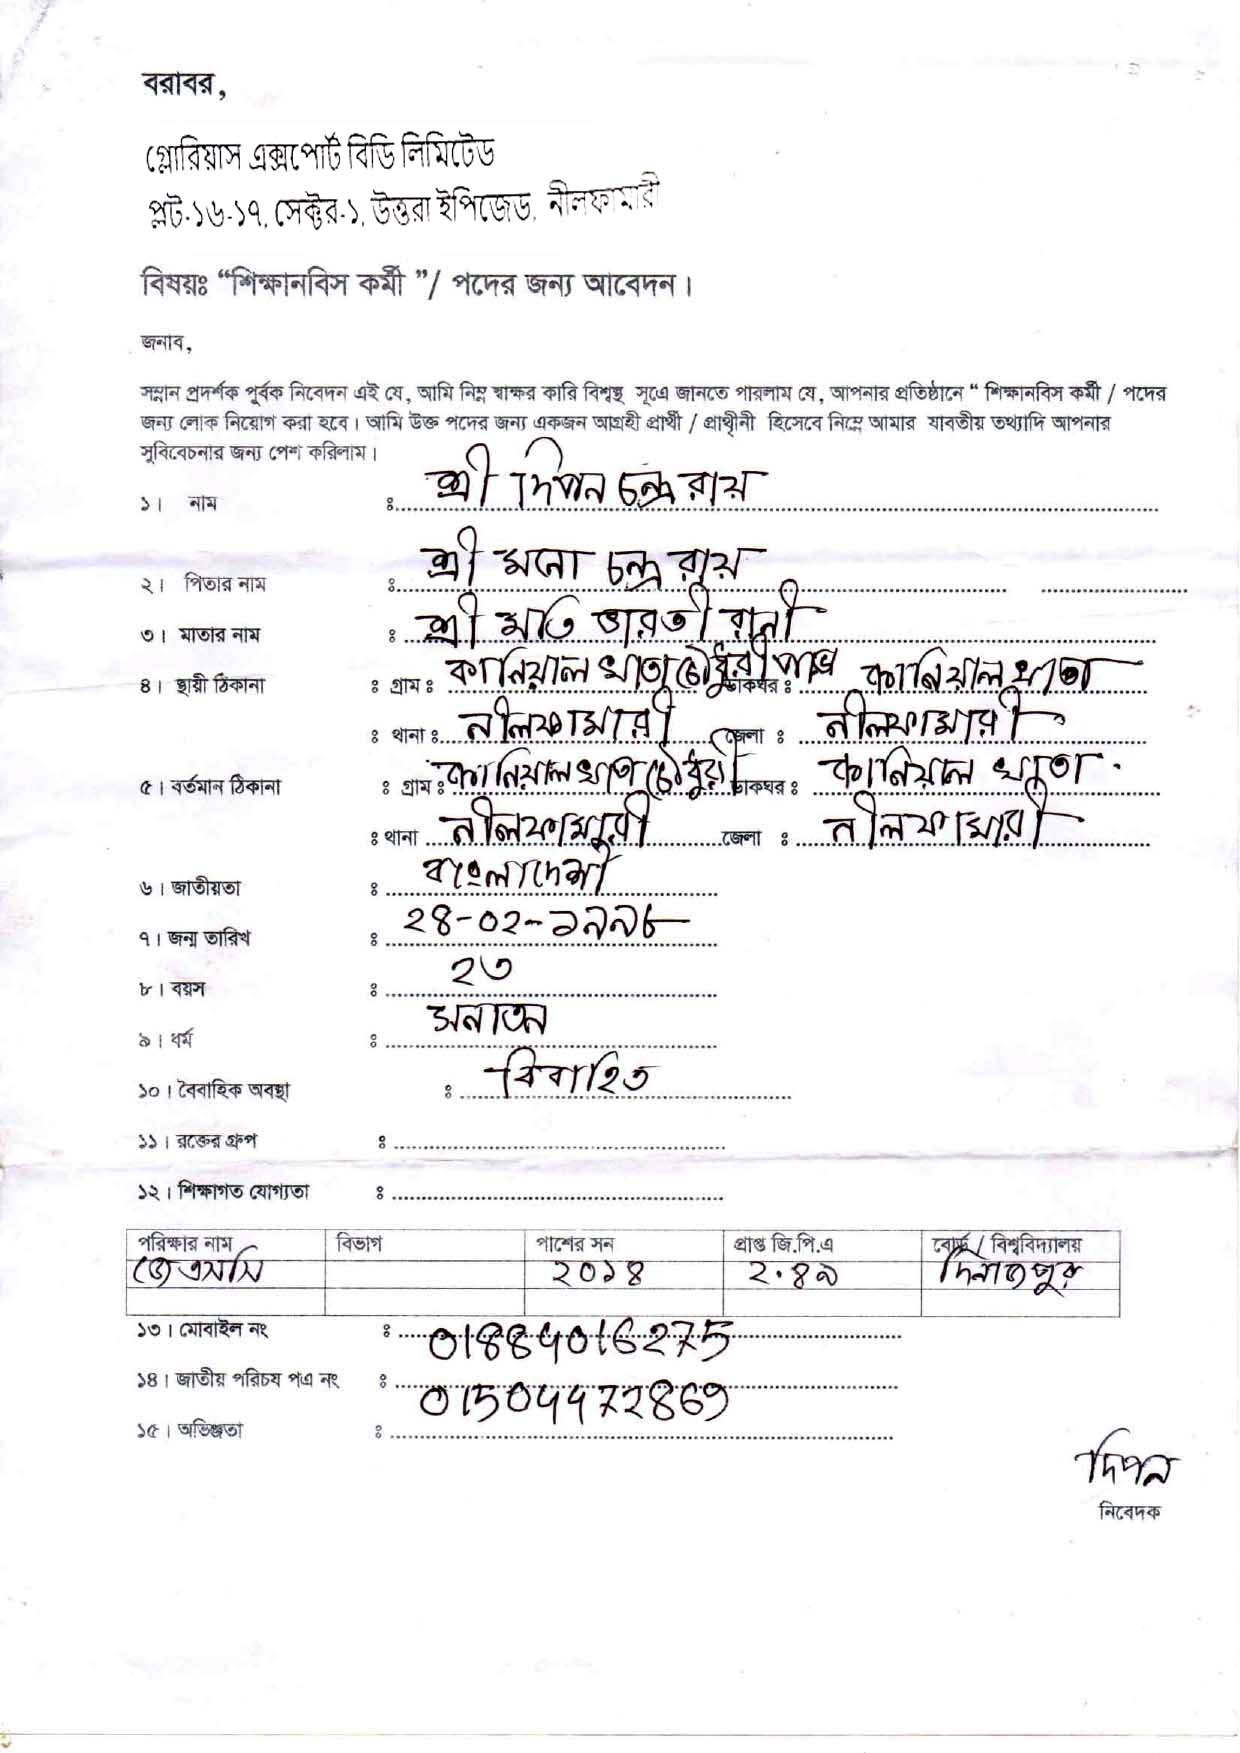 বরাবর,
গ্লোরিয়াস এক্সপোর্ট বিডি লিমিটেড
প্লট-১৬-১৭, সেক্টর-১, উত্তরা ইপিজেড, নীলফামারী
বিষয়ঃ “শিক্ষানবিস কর্মী ”/ পদের জন্য আবেদন।
জনাব,
সম্নান প্রদর্শক পূর্বক নিবেদন এই যে, আমি নিম্ন স্বাক্ষর কারি বিশ্বস্থ সূএে জানতে পারলাম যে, আপনার প্রতিষ্ঠানে “ শিক্ষানবিস কর্মী / পদের
জন্য লোক নিয়োগ করা হবে। আমি উক্ত পদের জন্য একজন আগ্রহী প্রার্থী / প্রার্থৃীনী হিসেবে নিম্নে আমার যাবতীয় তথ্যাদি আপনার
সুবিবেচনার জন্য পেশ করিলাম।
১। নাম ঃ শ্রী দিপন চন্দ্র রায়
২। পিতার নাম ঃ শ্রী মনো চন্দ্র রায়
৩। মাতার নাম ঃ শ্রী মতি ভারতী রানী
৪। স্থায়ী ঠিকানা ঃ গ্রাম ঃ কানিয়াল খাতা চৌধুরী পাড়া ডাকঘর ঃ কানিয়াল খাতা
ঃ থানা ঃ নীলফামারী জেলা ঃ নীলফামারী
৫। বর্তমান ঠিকানা ঃ গ্রাম ঃ কানিয়াল খাতা চৌধুরী ডাকঘর ঃ কানিয়াল খাতা
ঃ থানা নীলফামারী জেলা ঃ নীলফামারী
৬। জাতীয়তা ঃ বাংলাদেশী
৭। জন্ম তারিখ ঃ ২৪-০২-১৯৯৮
৮। বয়স ঃ ২৩
৯। ধর্ম ঃ সনাতন
১০। বৈবাহিক অবস্থা ঃ বিবাহিত
১১। রক্তের গ্রুপ ঃ
১২। শিক্ষাগত যোগ্যতা ঃ
পরিক্ষার নাম বিভাগ পাশের সন প্রাপ্ত জি.পি.এ বোর্ড / বিশ্ববিদ্যালয়
জেএসসি ২০১৪ ২.৪৯ দিনাজপুর
১৩। মোবাইল নং ঃ 01884016275
১৪। জাতীয় পরিচয় পএ নং ঃ
01504472869
১৫। অভিজ্ঞতা ঃ
দিপন
নিবেদক